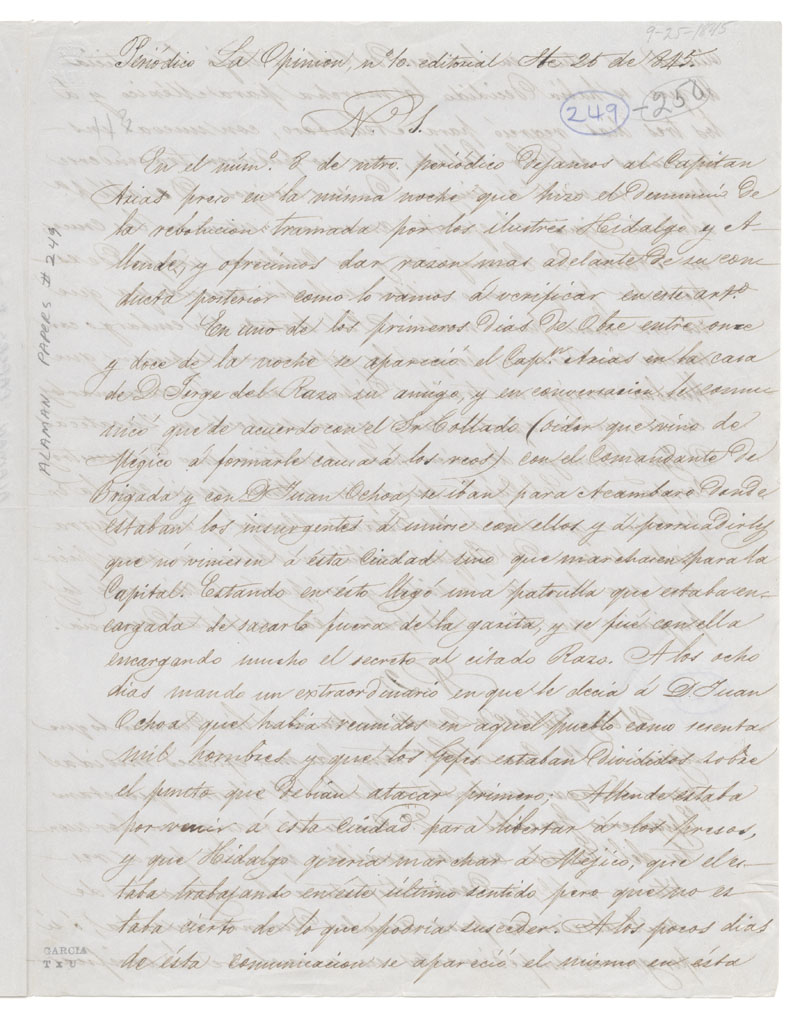 9-25-1845
Periódico La Opinion, nº 10. editorial Ste 25 de 1845.
249 - 250
Nº 1.
En el númº. 8 de ntro. periódico dejamos al Capitan
Arias preso en la misma noche que hizo el denuncio de
la revolucion tramada por los ilustres Hidalgo y A-
llende, y ofrecimos dar razon mas adelante de su con-
ducta posterior como lo vamos á verificar en este artº.
En uno de los primeros dias de Obre entre once
y doce de la noche se apareció el Capn. Arias en la casa
de D. Jorge del Razo su amigo, y en conversacion le comu-
nicó que de acuerdo con el Sr Collado (oidor que vino de
Mégico á formarle causa á los reos) con el Comandante de
Brigada y con D. Juan Ochoa, se iban para Acambaro donde
estaban los insurgentes á unirse con ellos y á persuadirles
que no viniesen á ésta Ciudad sino que marchasen para la
Capital. Estando en ésto llegó una patrulla que estaba en-
cargada de sacarlo fuera de la garita, y se fué con ella
encargando mucho el secreto al citado Razo. A los ocho
dias mandó un extraordinario en que le decia á D. Juan
Ochoa que habia reunidos en aquel pueblo como sesenta
mil hombres y que los Gefes estaban divididos sobre
el punto que debian atacar primero. Allende estaba
por venir á esta Ciudad para libertar á los presos,
y que Hidalgo queria marchar á Mejico, que el es-
taba trabajando en este último sentido pero que no es-
taba cierto de lo que podria susceder. A los pocos dias
de ésta comunicacion se apareció el mismo en ésta
ALAMAN PAPERS # 249
GARCIA
TXU